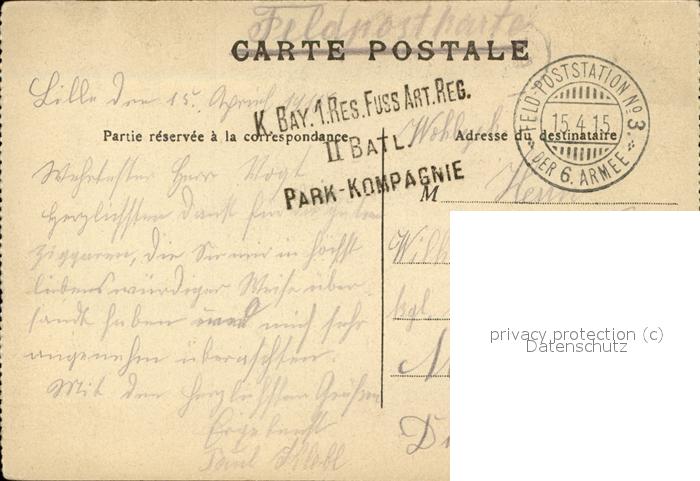 Feldpostkarte
CARTE POSTALE
Lille den 15. April 1915
K. BAY. 1. RES. FUSS ART. REG.
II BATL.
PARK-KOMPAGNIE
FELD-POSTSTATION No 3.
15.4.15
DER 6. ARMEE
Partie réservée à la correspondance
Adresse du destinataire
Wehrtester Herr Vogt
Herzlichsten Dank für die guten
Ziggaren, die Sie mir in höchst
liebenswürdiger Weise über-
sandt haben und mich sehr
angenehm überraschten.
Mit den herzlichsten Grüßen
Ergebenst
Paul
M
Herrn
kgl.
privacy protection (c)
Datenschutz